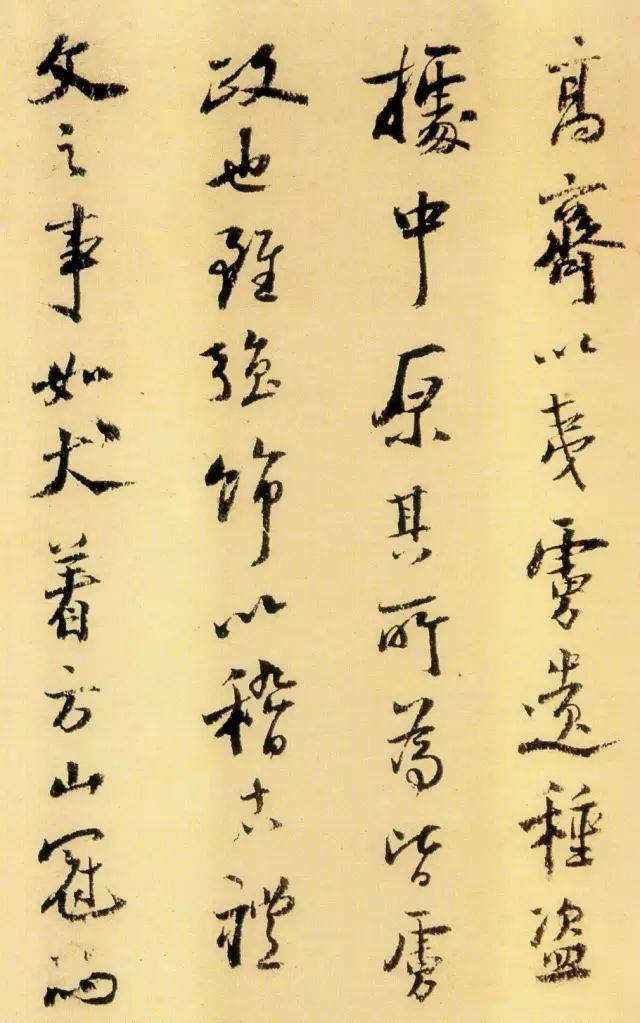 高齊以夷虜遺種盜
據中原其所為皆虜
政也雖強飾以稽古禮
文之事如犬着方山冠而